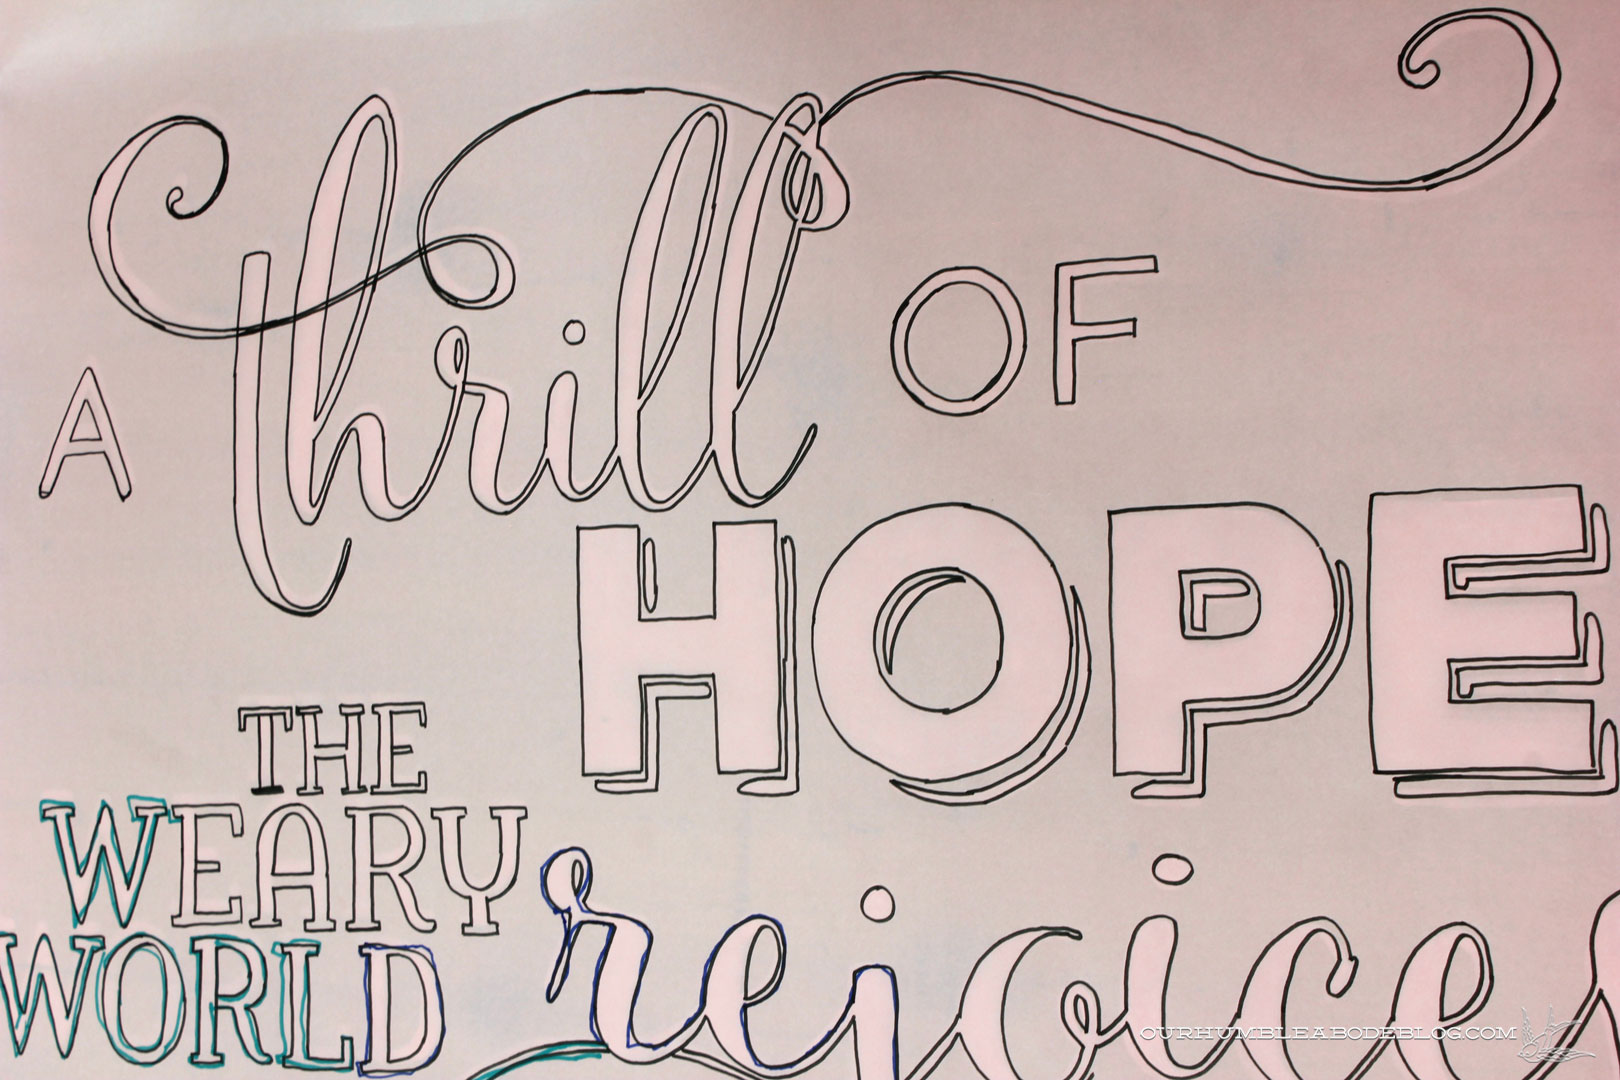 A thrill OF
HOPE
THE
WEARY
WORLD rejoices
OURHUMBLEABODEBLOG.COM